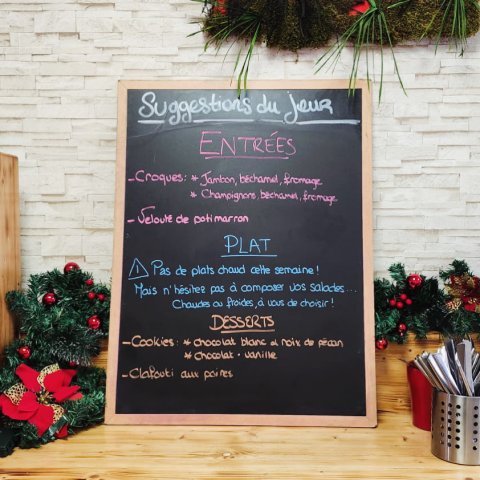 Suggestions du jour
ENTRÉES
- Croques : * Jambon, béchamel, fromage
* Champignons, béchamel, fromage
- Velouté de potimarron
PLAT
! Pas de plats chaud cette semaine !
Mais n'hésitez pas à composer vos salades...
Chaudes ou froides, à vous de choisir !
DESSERTS
- Cookies : * chocolat blanc et noix de pécan
* chocolat - vanille
- Clafouti aux poires